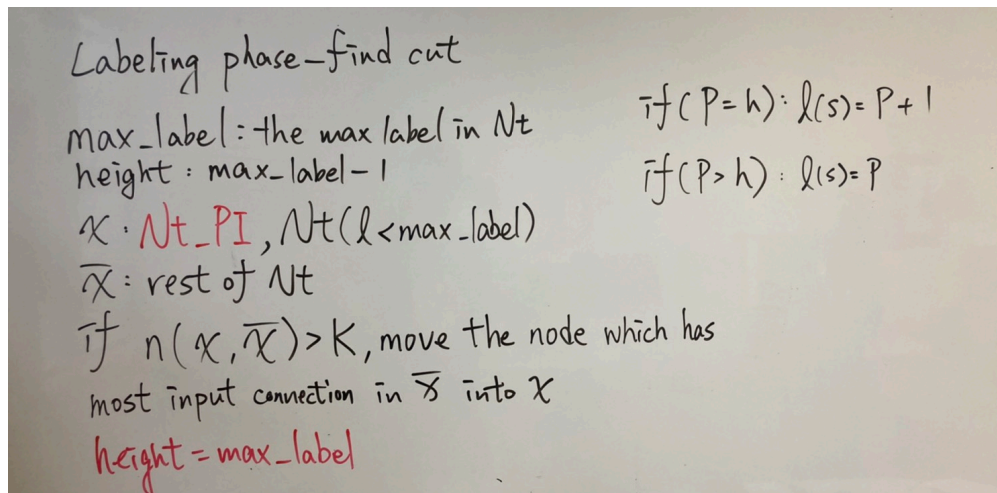 Labeling phase-find cut
max_label: the max label in Nt
height: max_label-1
X: Nt_PI, Nt(l<max_label)
X̅: rest of Nt
if n(X, X̅)>K, move the node which has
most input connection in X̅ into X
height = max_label
if(P=h): l(s)=P+1
if(P>h): l(s)=P